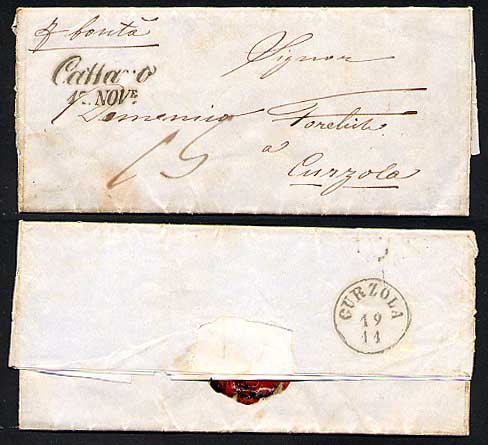 p bontà
Signor
Cattaro
17. NOVE
Domenico Foretich
a
15
Curzola
CURZOLA
19
11